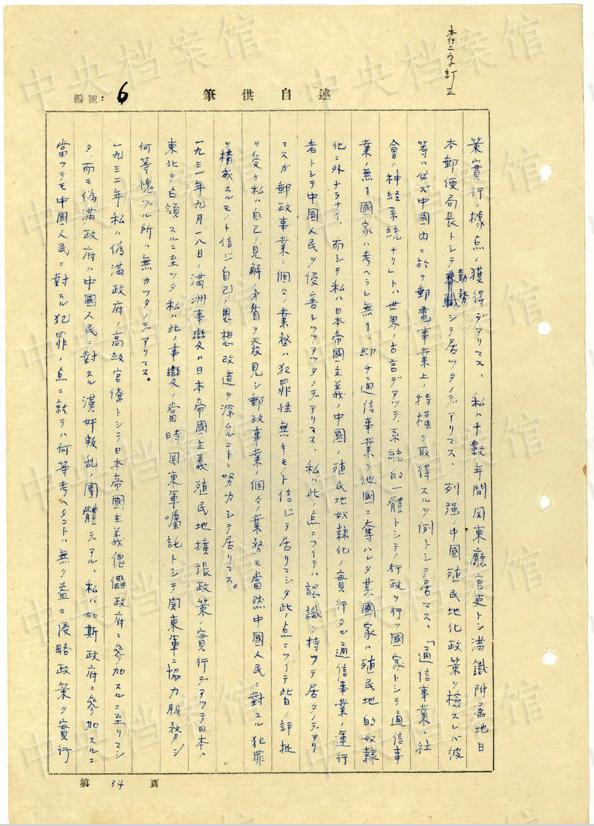 本行二字訂正
編號：6
筆供自述
策實行ノ據点ノ獲得デアリマス、私ハ十數年間関東廳官吏トシ満鐵附属地日
本郵便局長トシテ勤務シテ居ツタノデアリマス、列强ノ中國殖民地化政策ヲ檢スレバ彼
等ハ必ズ中國内ニ於テ郵電事業上ノ特權ヲ取得スルヲ例トシテ居マス、「通信事業ハ社
會ノ神経系統ナリ」トハ世界ノ古言デアツテ、系統的一體トシテノ行政ヲ行フ國家トシテ通信事
業ノ無キ國家ハ考ヘラレ無イ、即チ通信事業ヲ他國ニ奪ハレタ其國家ハ殖民地的奴隷
化ニ外ナラナイ、而シテ私ハ日本帝國主義ノ中國ノ殖民地奴隷化ノ實行タル通信事業ノ運行
者トシテ中國人民ヲ侵害シツツアツタノデアリマス、私ハ此ノ点ニツイテハ認識ヲ持ツテ居タノデアリ
マスガ郵政事業ノ個々ノ業務ハ犯罪性無キモノト信ジテ居リマシタ此点ニツイテ皆ノ評批
ヲ受ケ私ハ自己ノ見解ノ矛盾ヲ發見シ郵政事業ノ個々ノ業務モ當然中國人民ニ對スル犯罪
ヲ構成スルモノト信ジ自己ノ思想改造ヲ深ムルコトニ努力シテ居リマス。
一九三一年九月一八日満洲事變ハ日本帝國主義殖民地擴張政策ノ實行デアツテ日本ハ
東北ヲ占領スルニ至ツタ私ハ此ノ事變ノ當時関東軍嘱託トシテ関東軍ニ協力服務シ
何等愧ヅル所ハ無カツタノデアリマス。
一九三二年私ハ偽満政府ノ高級官僚トシテ日本帝國主義傀儡政府ニ參加スルニ至リマシ
タ而モ偽満政府ハ中國人民ニ對スル漢奸叛乱ノ團體デアル、私ハ如斯政府ニ參加スルニ
當ツテモ中國人民ニ對スル犯罪ノ点ニ就テハ何等考ヘタコトハ無ク益々侵略政策ヲ實行
第34頁
中央档案馆